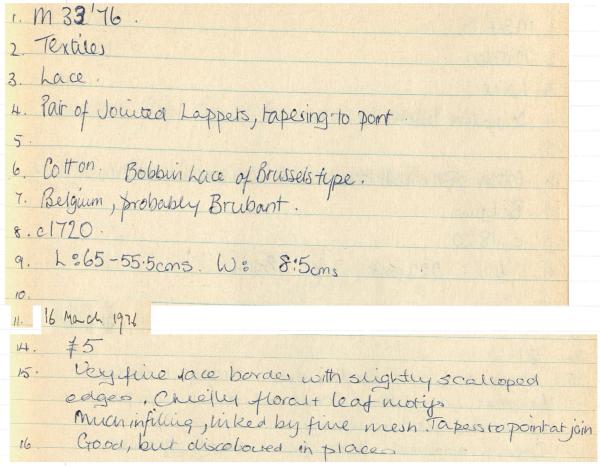 1. M 33'76.
2. Textiles
3. Lace.
4. Pair of Jointed Lappets, tapering to point
5.
6. Cotton. Bobbin Lace of Brussels type.
7. Belgium, probably Brubant.
8. c1720.
9. L: 65-55.5cms. W: 8.5cms
10.
11. 16 March 1976
14. £5
15. Very fine lace border with slightly scalloped
edges. Chiefly floral + leaf motifs
Much infilling, linked by fine mesh. Tapers to point at join
16. Good, but discoloured in places